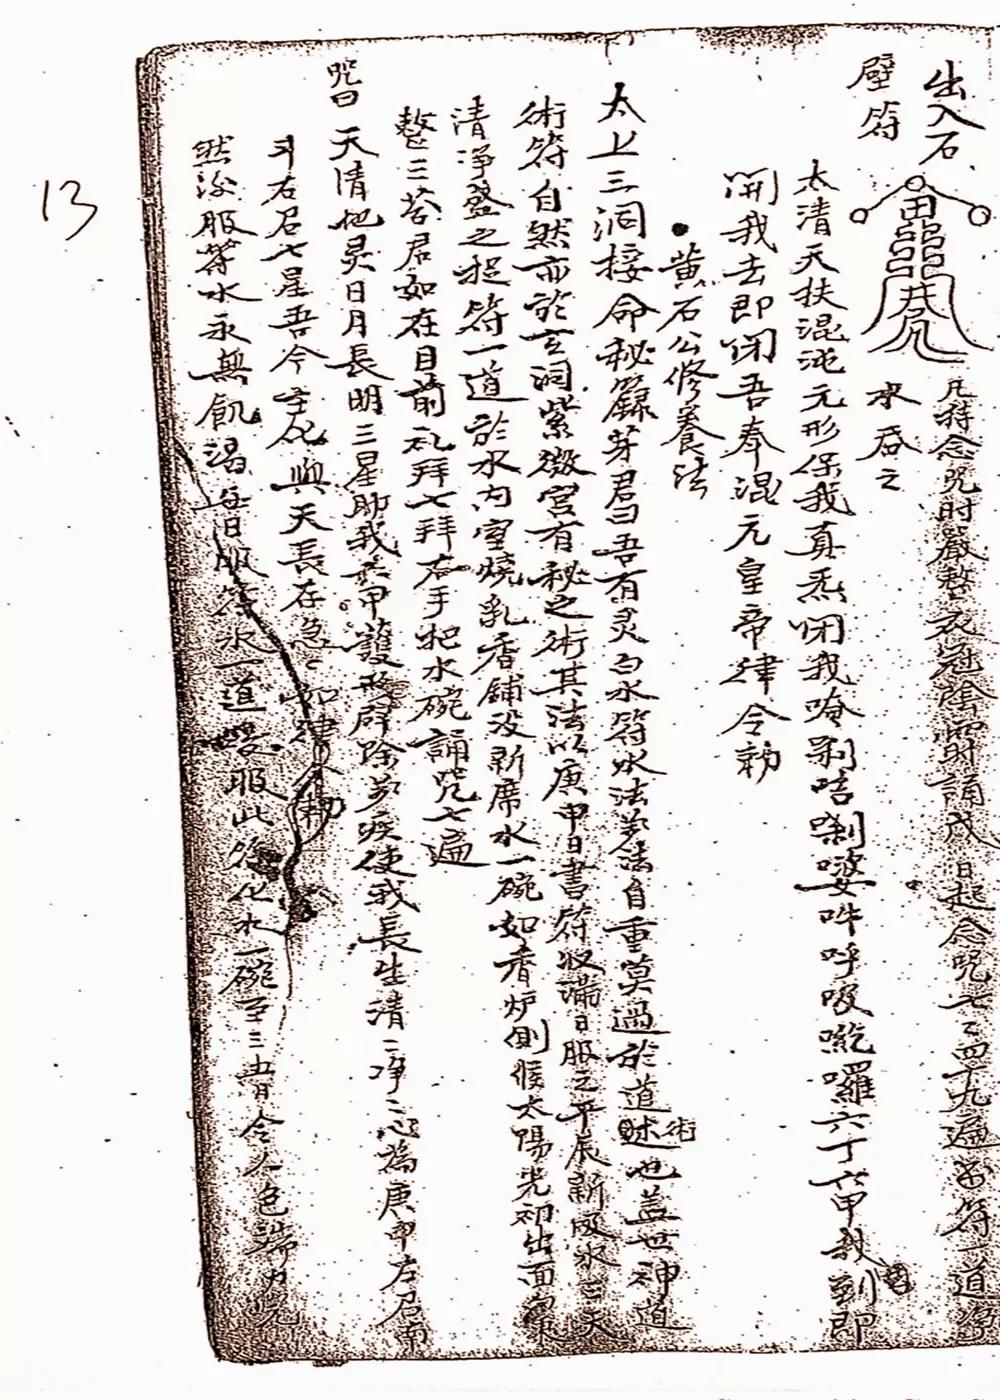 出入石
壁符
凡符念咒时嚴整衣冠隂时誦戊日起念咒七七四十九遍書符一道
水吞之
太清天扶混沌元形保我真炁闭我唵剎唂囉六丁六甲我到即
開我去即闭吾奉混元皇帝律令勅
黄石公修養法
太上三洞接命秘籙芽君曰吾有灵白水符水法其法自重莫過於道術也盖世神道
術符自然而於玄洞紫微宮有秘之術其法以庚申日書符收滿日服之平辰新汲水三天
清净盛之捉符一道於水内室燒乳香鋪没新席水一碗如香炉側候太陽光初出面向東
整三茶君如在目前礼拜七拜右手把水碗誦咒七遍
咒曰
天清地灵日月長明三星助我六甲護形辟除萬疾使我長生清二净二心為庚申左召南
斗右召七星吾今与天長在急二如律勅
然後服符水永無飢渴每日服符水一道要服此符化水一碗至三五日令人色端
13